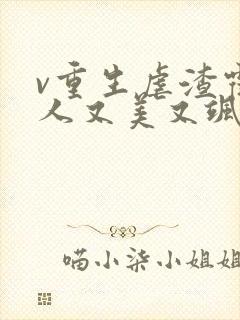 v重生虐渣霍
人又美又飒
喵小柒小姐姐